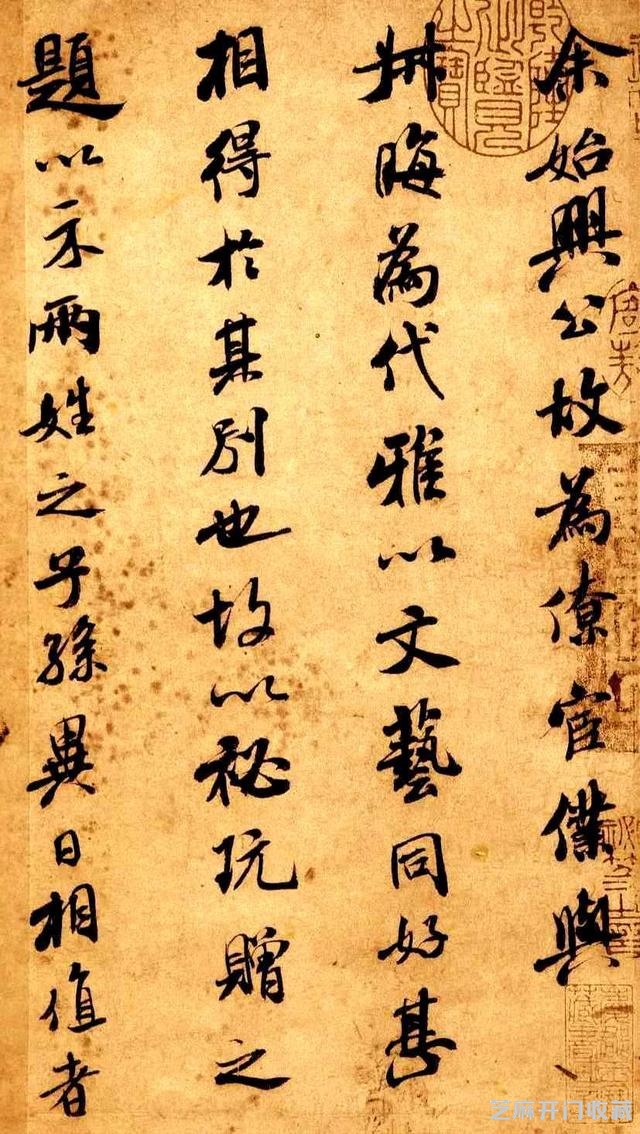 余始興公故為僚宦僕與
叔晦為代雅以文藝同好甚
相得於其別也故以秘玩贈之
題以示兩姓之子孫異日相值者
芝麻开门收藏